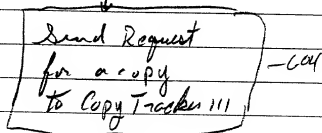 Send Request
for a copy
to Copy Tracker !!!